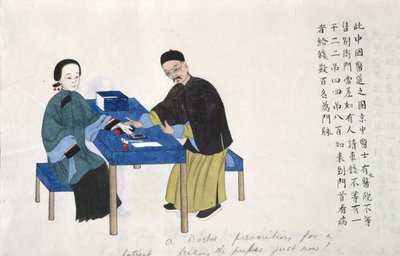 此中國醫道之圖京中醫士有醫院不等
別衙門當差如有人請車錢不等有一
干二二吊四四吊八百如來到門首看病
者給錢数百名為門脉
a Doctor prescribing for a
patient feeling the pulse just now!